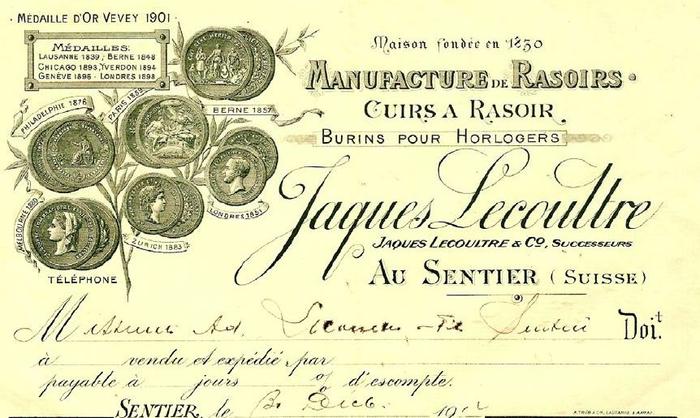 MÉDAILLE D'OR VEVEY 1901
MÉDAILLES:
LAUSANNE 1839, BERNE 1848
CHICAGO 1893, YVERDON 1894
GENÈVE 1896 - LONDRES 1898
PHILADELPHIE 1876
PARIS
BERNE 1857
MELBOURNE
ZURICH 1883
LONDRES 1851
TÉLÉPHONE
Maison fondée en 1850
MANUFACTURE DE RASOIRS
CUIRS A RASOIR
BURINS POUR HORLOGERS
Jaques Lecoultre
JAQUES LECOULTRE & CO, SUCCESSEURS
AU SENTIER (SUISSE)
M Ad. Sentier Doit
à vendu et expédié par
payable à jours % d'escompte.
SENTIER, le Dcb. 19